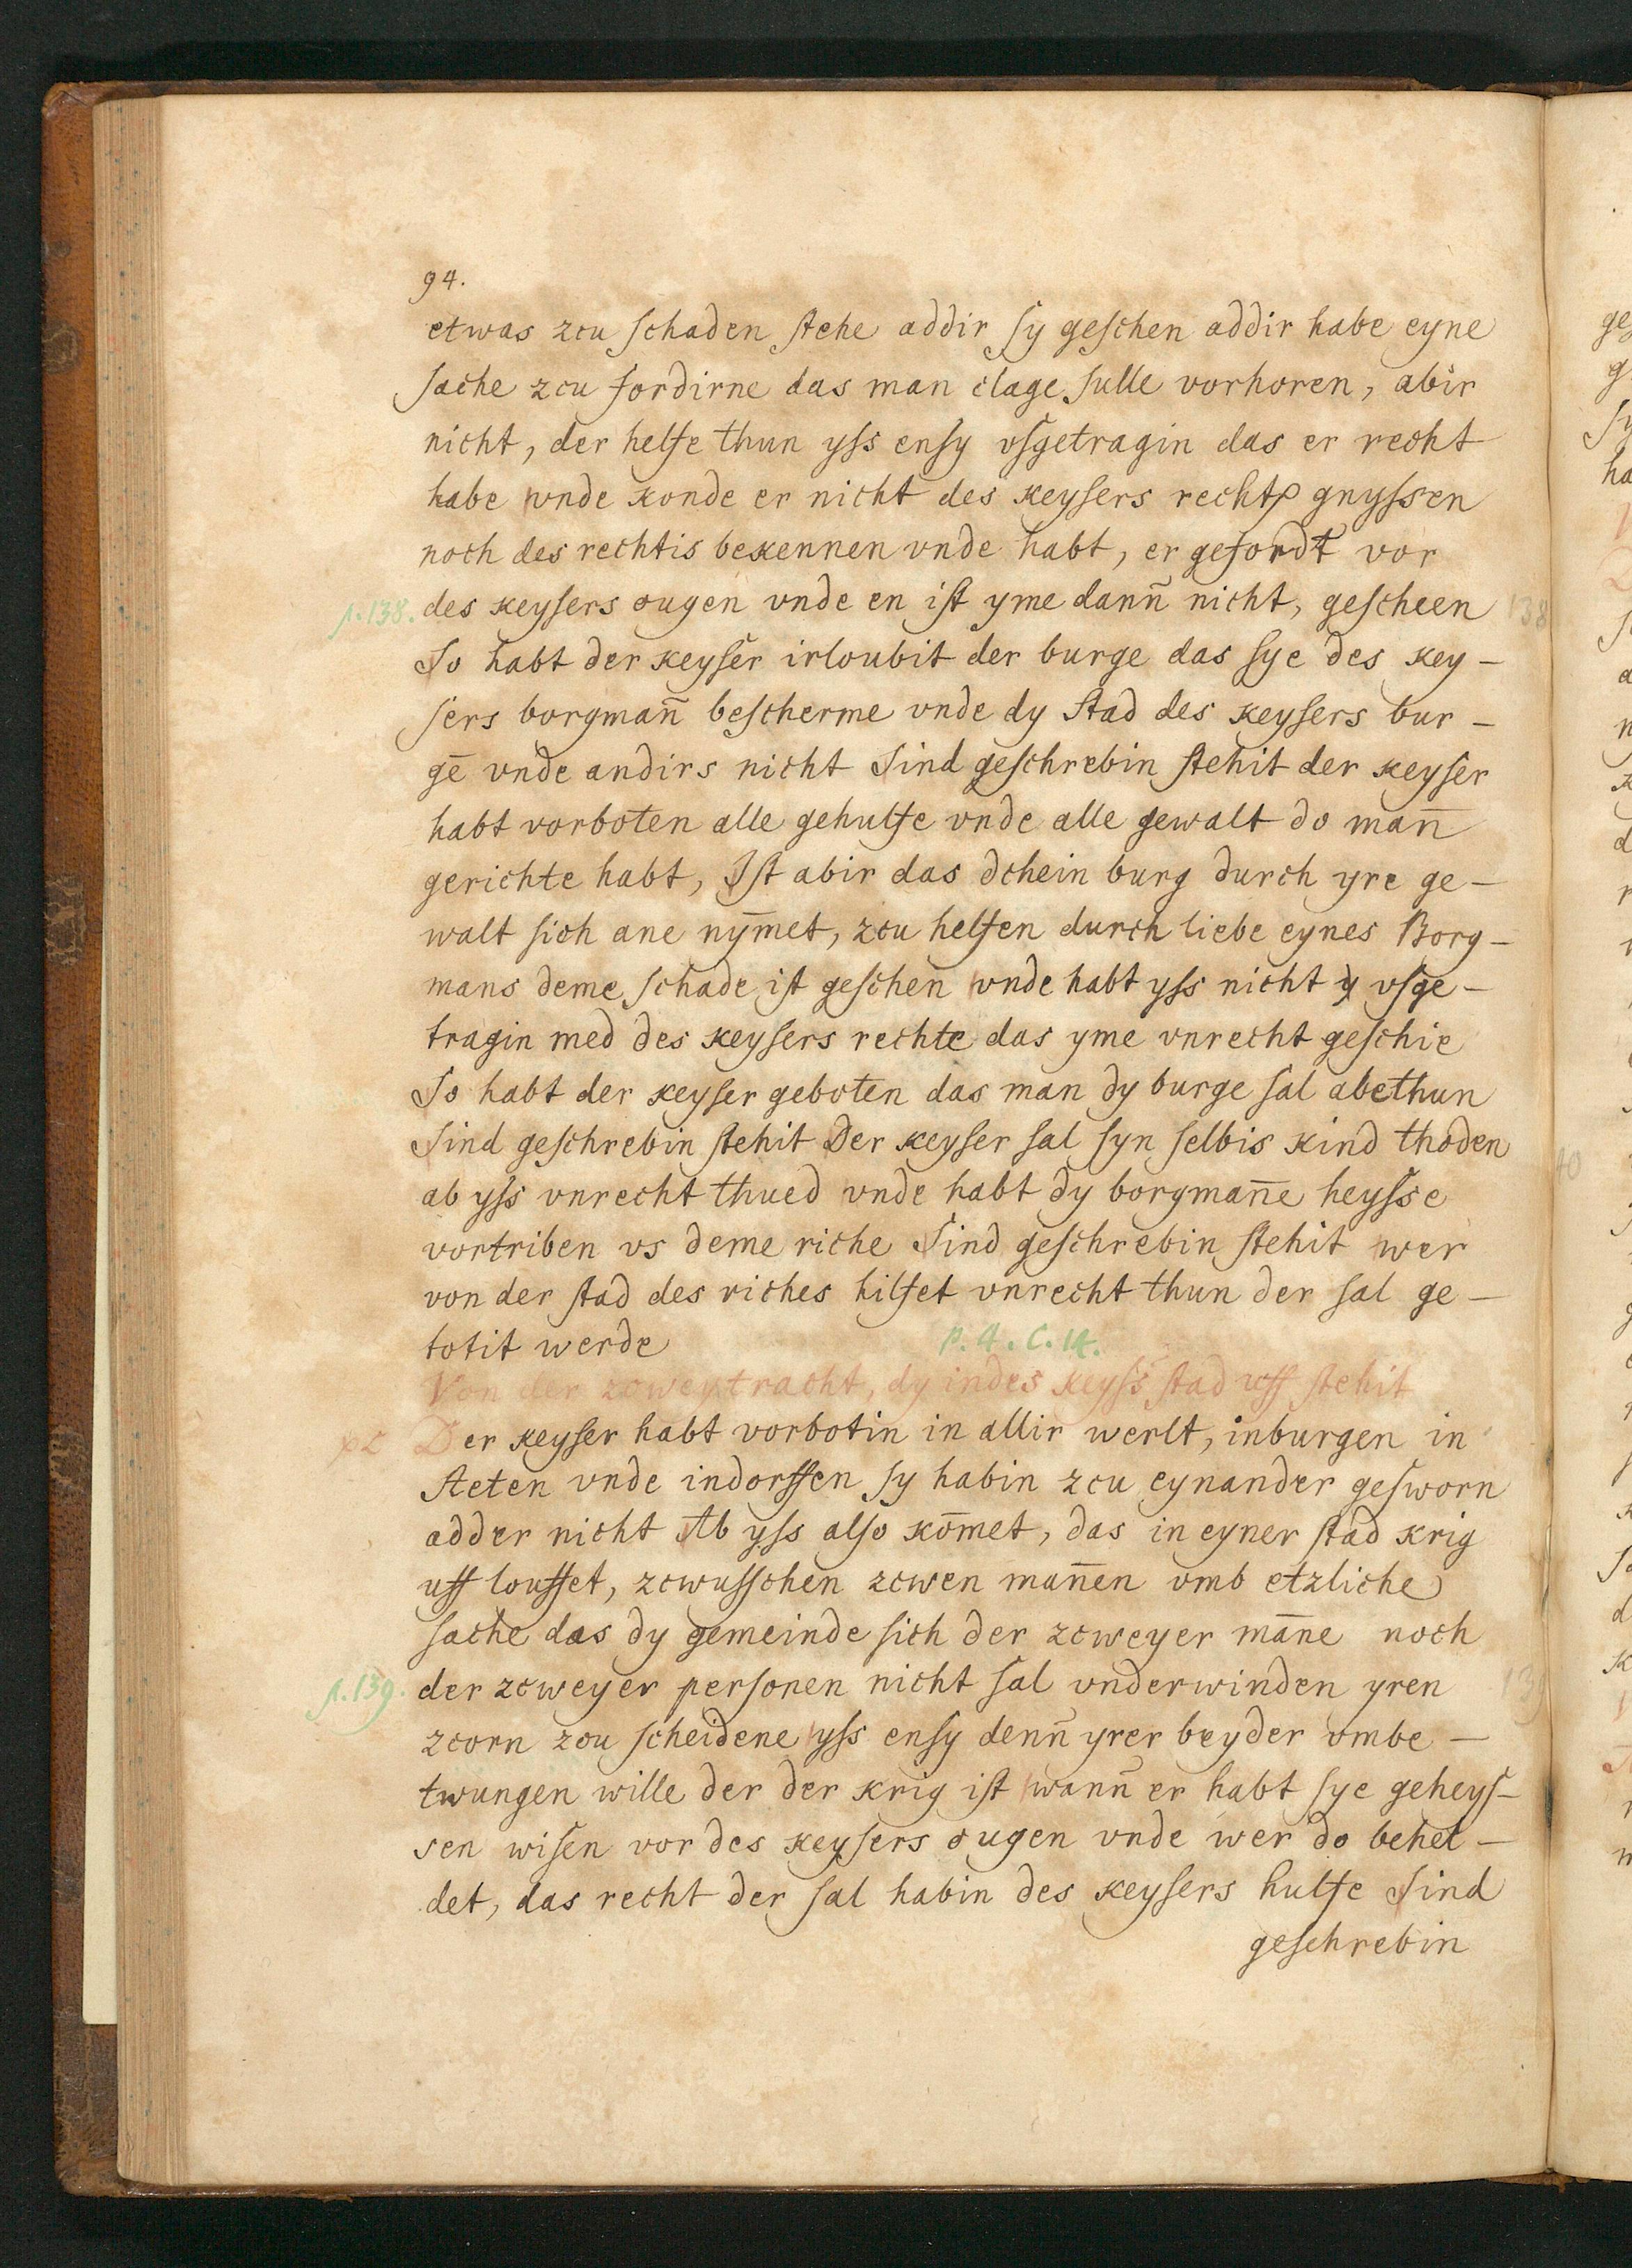 94.
etwas zcu schaden stehe addir sy geschen addir habe eyne
sache zcu fordirne das man clage sulle vorhoren, abir
nicht, der helfe thun yss ensy vsgetragin das er recht
habe vnde konde er nicht des keysers rechtꝭ gnyssen
noch des rechtis bekennen vnde habt, er gefordt vor
p. 138. des keysers ougen vnde en ist yme dann̄ nicht, gescheen
So habt der keyser irloubit der burge das sye des key–
sers borgman̄ bescherme vnde dy Stad des keysers bur–
gē vnde andirs nicht Sind geschrebin stehit der keyser
habt vorboten alle gehulfe vnde alle gewalt do man̄
gerichte habt, Ist abir das dchein burg durch yre ge–
walt sich ane nȳmet, zcu helfen durch liebe eynes Borg–
mans deme schade ist geschen vnde habt yss nicht vsge–
tragin med des keysers rechte das yme vnrecht geschie
So habt der keyser geboten das man dy burge sal abethun
Sind geschrebin stehit Der keyser sal syn selbis kind thoden
ab yss vnrecht thued vnde habt dy borgman̄e heysse
vortriben vs deme riche Sind geschrebin stehit wer
von der stad des riches hilfet vnrecht thun der sal ge–
totit werde
p. 4. C. 14.
Von der zcweytracht, dy indes keyss̄ stad uff stehit
Der keyser habt vorbotin in allir werlt, inburgen in
steten vnde indorffen sy habin zcu eynander gesworn
adder nicht Ab yss also kōmet, das in eyner stad krig
uff louffet, zcwusschen zcwen man̄en vmb etzliche
sache das dy gemeinde sich der zcweyer mān̄e noch
p. 139. der zcweyer personen nicht sal vnderwinden yren
zcorn zcu scheidene yss ensy denn̄ yrer beyder vmbe–
twungen wille der der krig ist wann̄ er habt sye geheys–
sen wisen vor des keysers ougen vnde wer do behel–
det, das recht der sal habin des keysers hulfe Sind
geschrebin